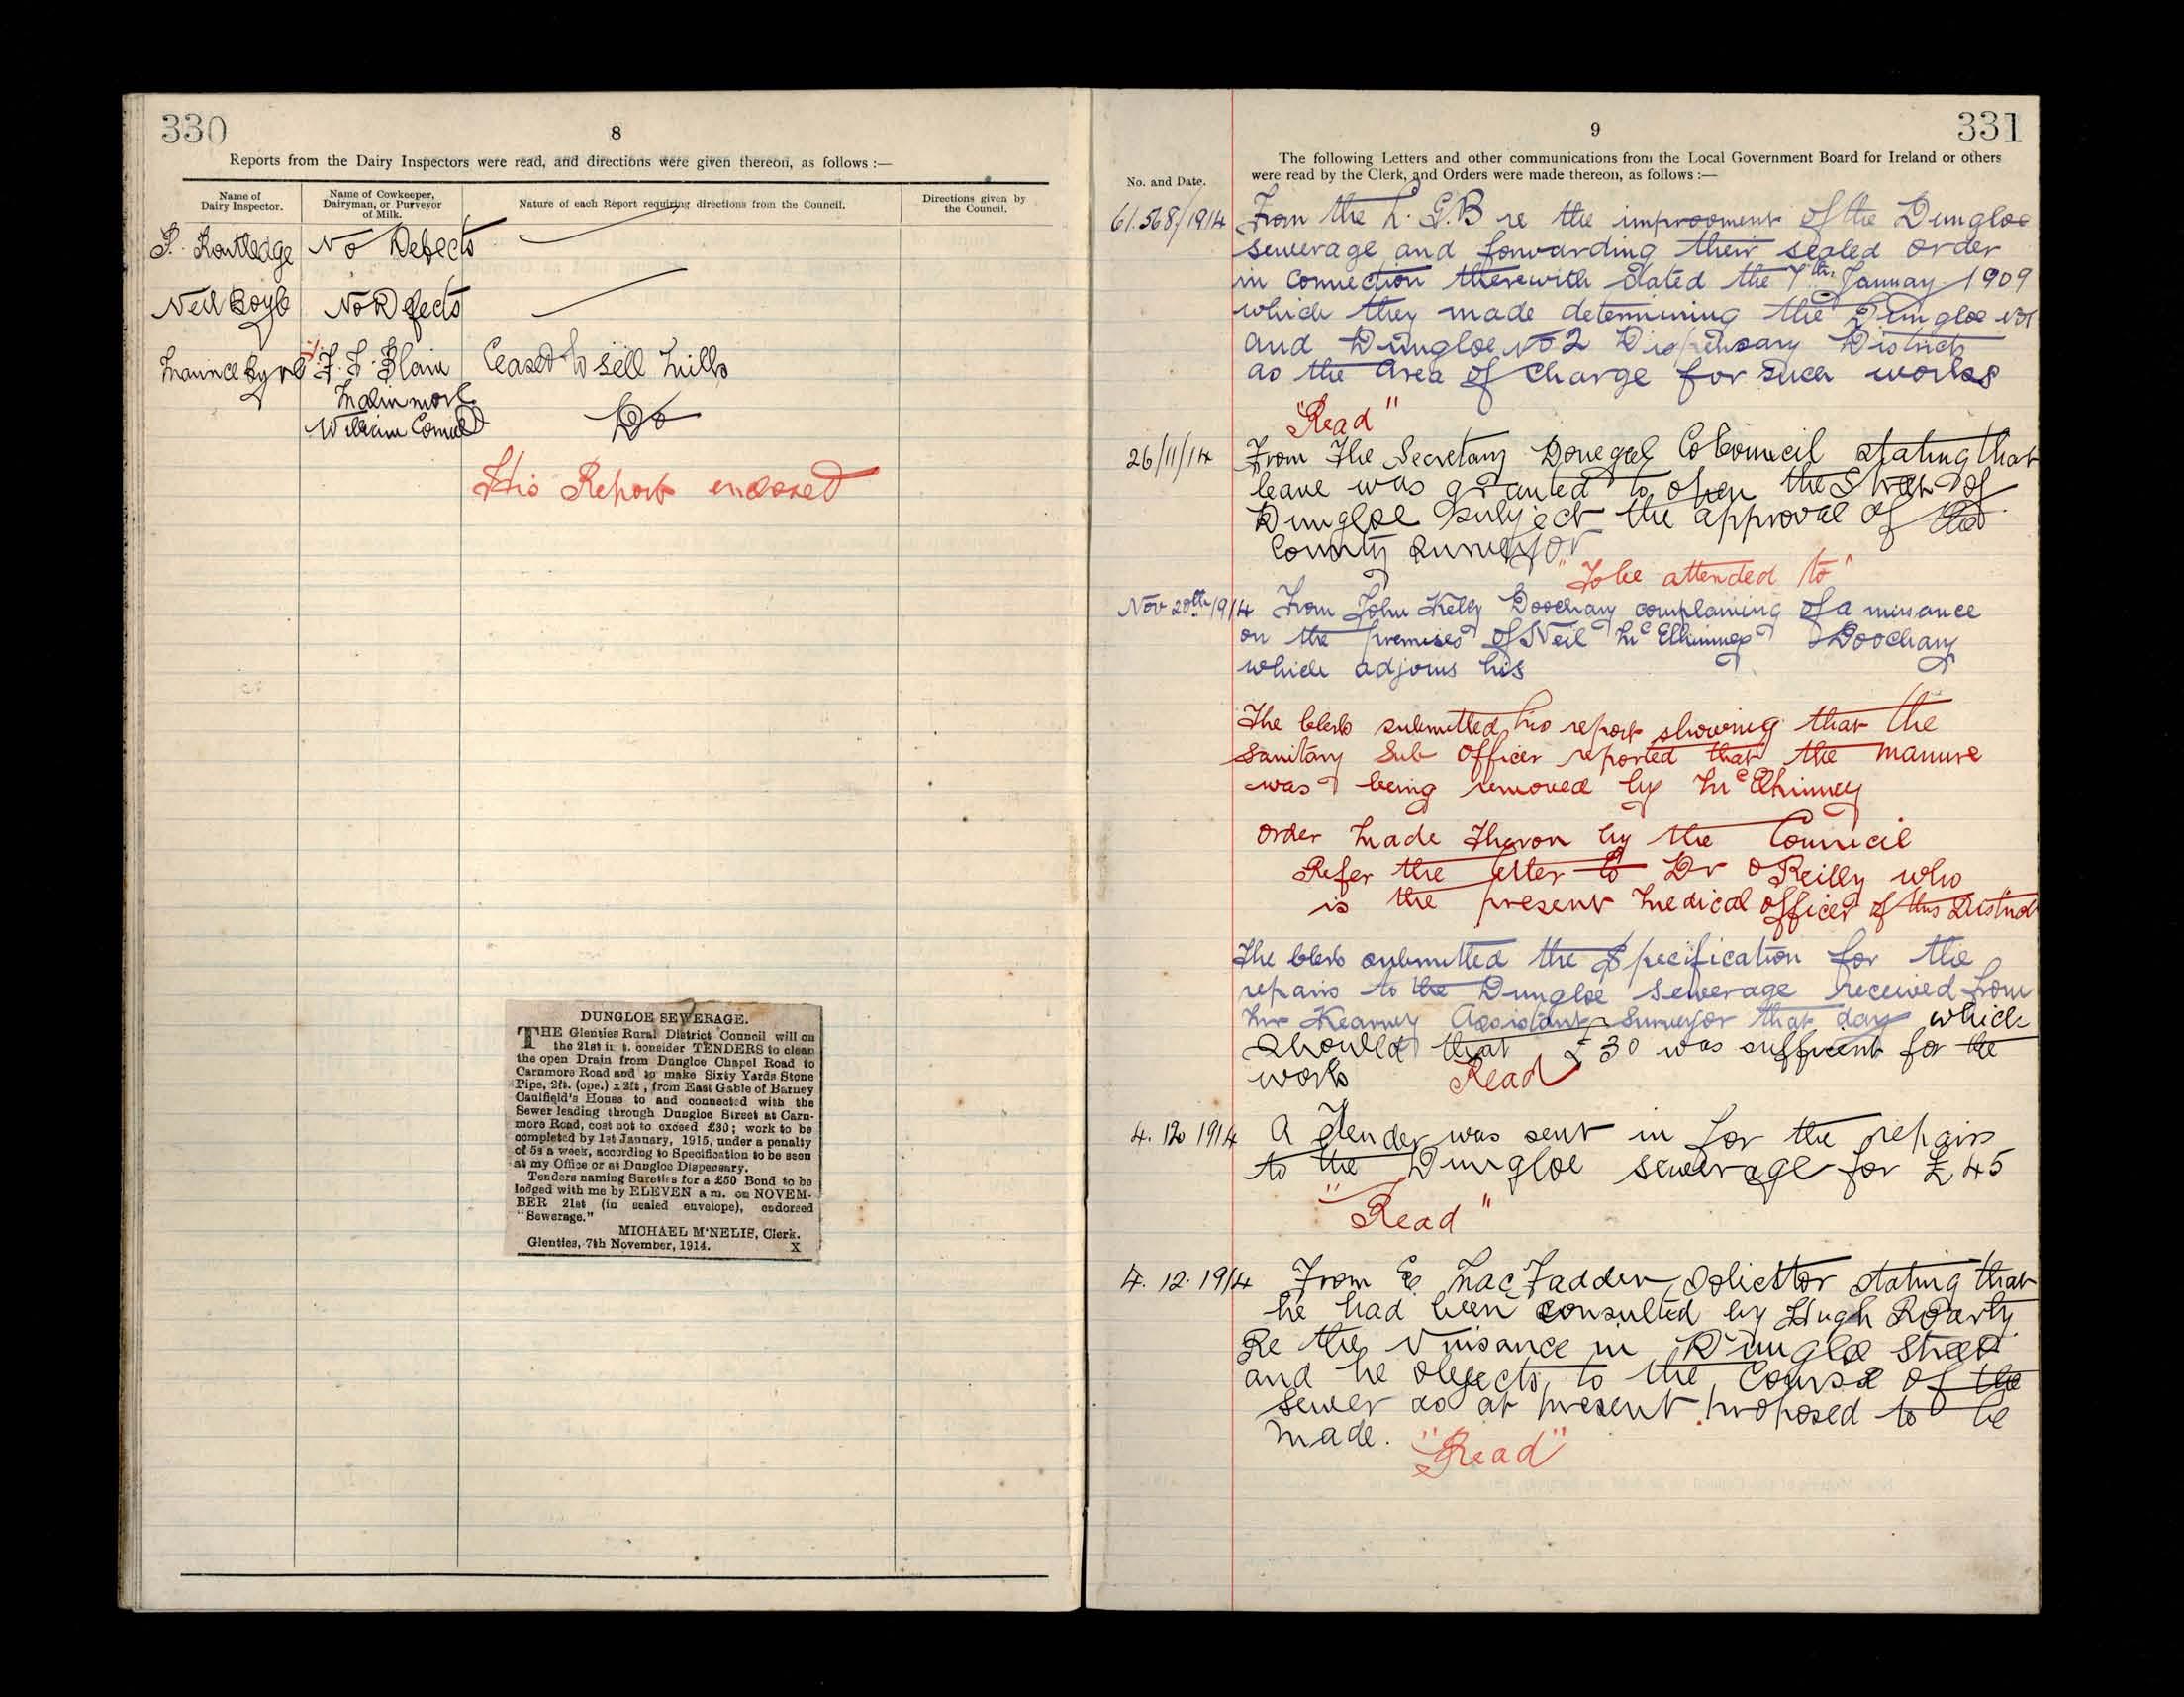 330
8
Reports from the Dairy Inspectors were read, and directions were given thereon, as follows :—
Name of
Dairy Inspector.
Name of Cowkeeper,
Dairyman, or Purveyor
of Milk.
Nature of each Report requiring directions from the Council.
Directions given by
the Council.
P. Routledge No Defects
Neil Boyle No Defects
Maurice Byrne F. L. Blain Ceased to sell milk
Malinmore
William Do
His Report enclosed
DUNGLOE SEWERAGE.
THE Glenties Rural District Council will on
the 21st in t. consider TENDERS to clean
the open Drain from Dungloe Chapel Road to
Carnmore Road and to make Sixty Yards Stone
Pipe, 2ft. (ope.) x 2ft , from East Gable of Barney
Caulfield's House to and connected with the
Sewer leading through Dungloe Street at Carn-
more Road, cost not to exceed £30; work to be
completed by 1st January, 1915, under a penalty
of 5s a week, according to Specification to be seen
at my Office or at Dungloe Dispensary.
Tenders naming Sureties for a £50 Bond to be
lodged with me by ELEVEN a m. on NOVEM-
BER 21st (in sealed envelope), endorsed
"Sewerage."
MICHAEL M'NELIS, Clerk.
Glenties, 7th November, 1914. X
9
331
The following Letters and other communications from the Local Government Board for Ireland or others
were read by the Clerk, and Orders were made thereon, as follows :—
No. and Date.
61.568/1914 From the L. G.B re the improoment of the Dungloe
sewerage and forwarding their sealed order
in connection therewith dated the 7th January 1909
which they made determining the Dungloe No1
and Dungloe No 2 Dispensary Districts
as the area of charge for such works
"Read"
26/11/14 From The Secretary Donegal Co Council stating that
leave was granted to open the Street of
Dungloe subject the approval of the
County Surveyor
"To be attended to"
Nov 20th 1914 From John Kelly Doochary complaining of a nuisance
on the premises of Neil McElhinney Doochary
which adjoins his
The Clerk submitted his report showing that the
Sanitary Sub Officer reported that the manure
was being removed by McElhinney
Order made theron by the Council
Refer the letter to Dr O Reilly who
is the present Medical Officer of this District
The Clerk submitted the Specification for the
repairs to the Dungloe Sewerage received from
Mr Kearney Assistant Surveyor that day which
showed that £30 was sufficent for the
work Read
4. 12 1914 A Tender was sent in for the repairs
to the Dungloe sewerage for £45
"Read"
4. 12. 1914 From E. MacFadden, Solicitor stating that
he had been consulted by Hugh Roarty
Re the Nuisance in Dungloe Street
and he objects to the course of the
sewer as at present proposed to be
made. "Read"